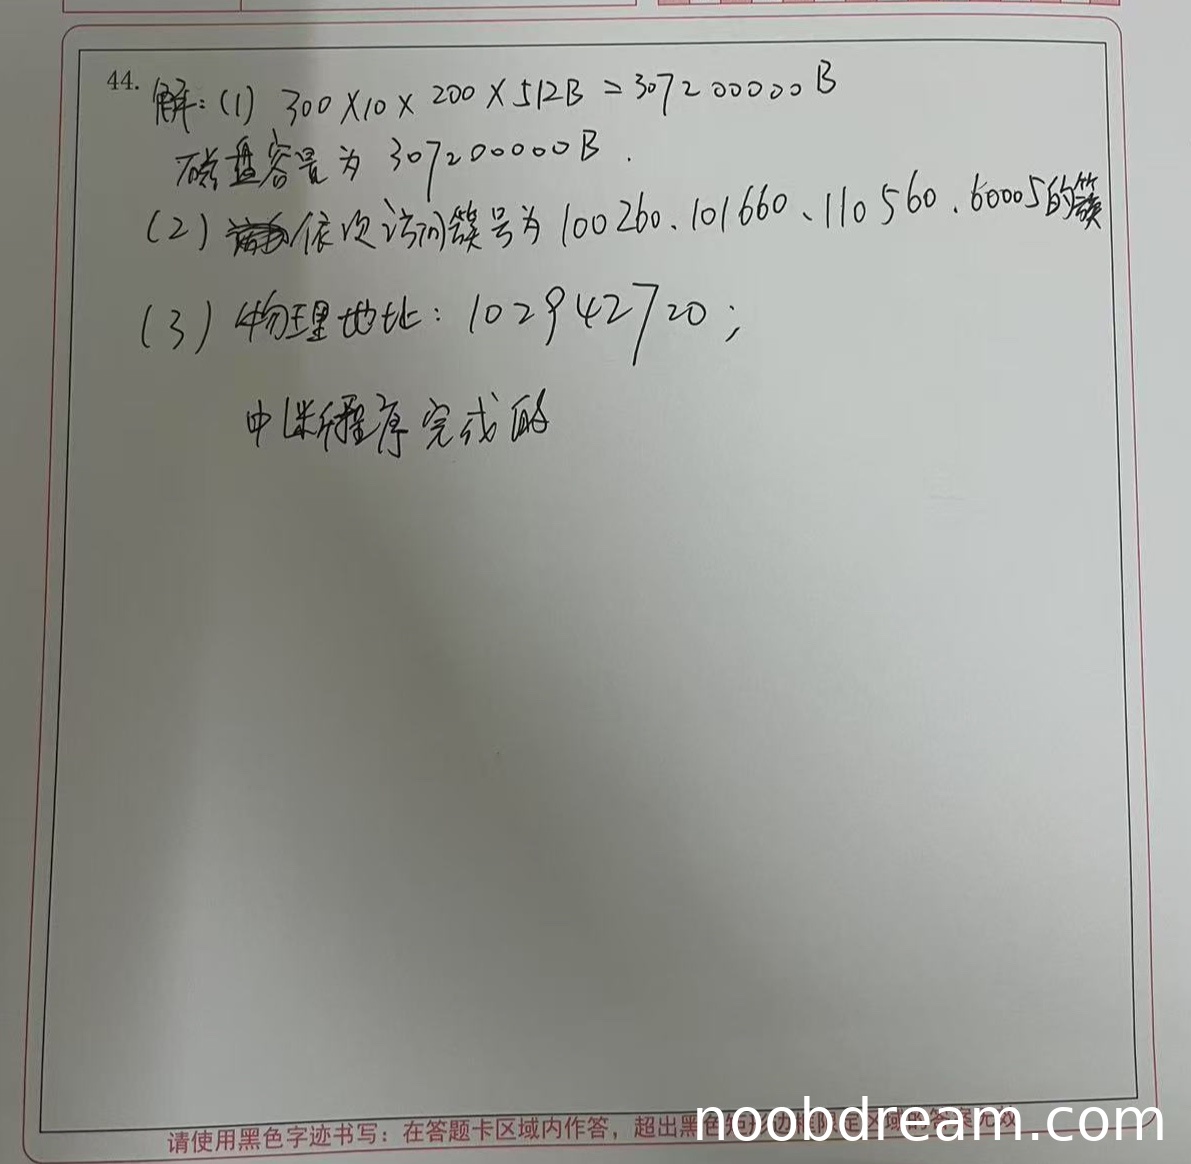 44. 解:(1) 300×10×200×512B=307200000B
磁盘容量为 307200000B.
(2) 依次访问簇号为100260、101660、110560、60005的簇
(3) 物理地址: 102942720;
中断程序完成的
请使用黑色字迹书写:在答题卡区域内作答,超出黑色矩形边框限定区域的答案无效
noobdream.com